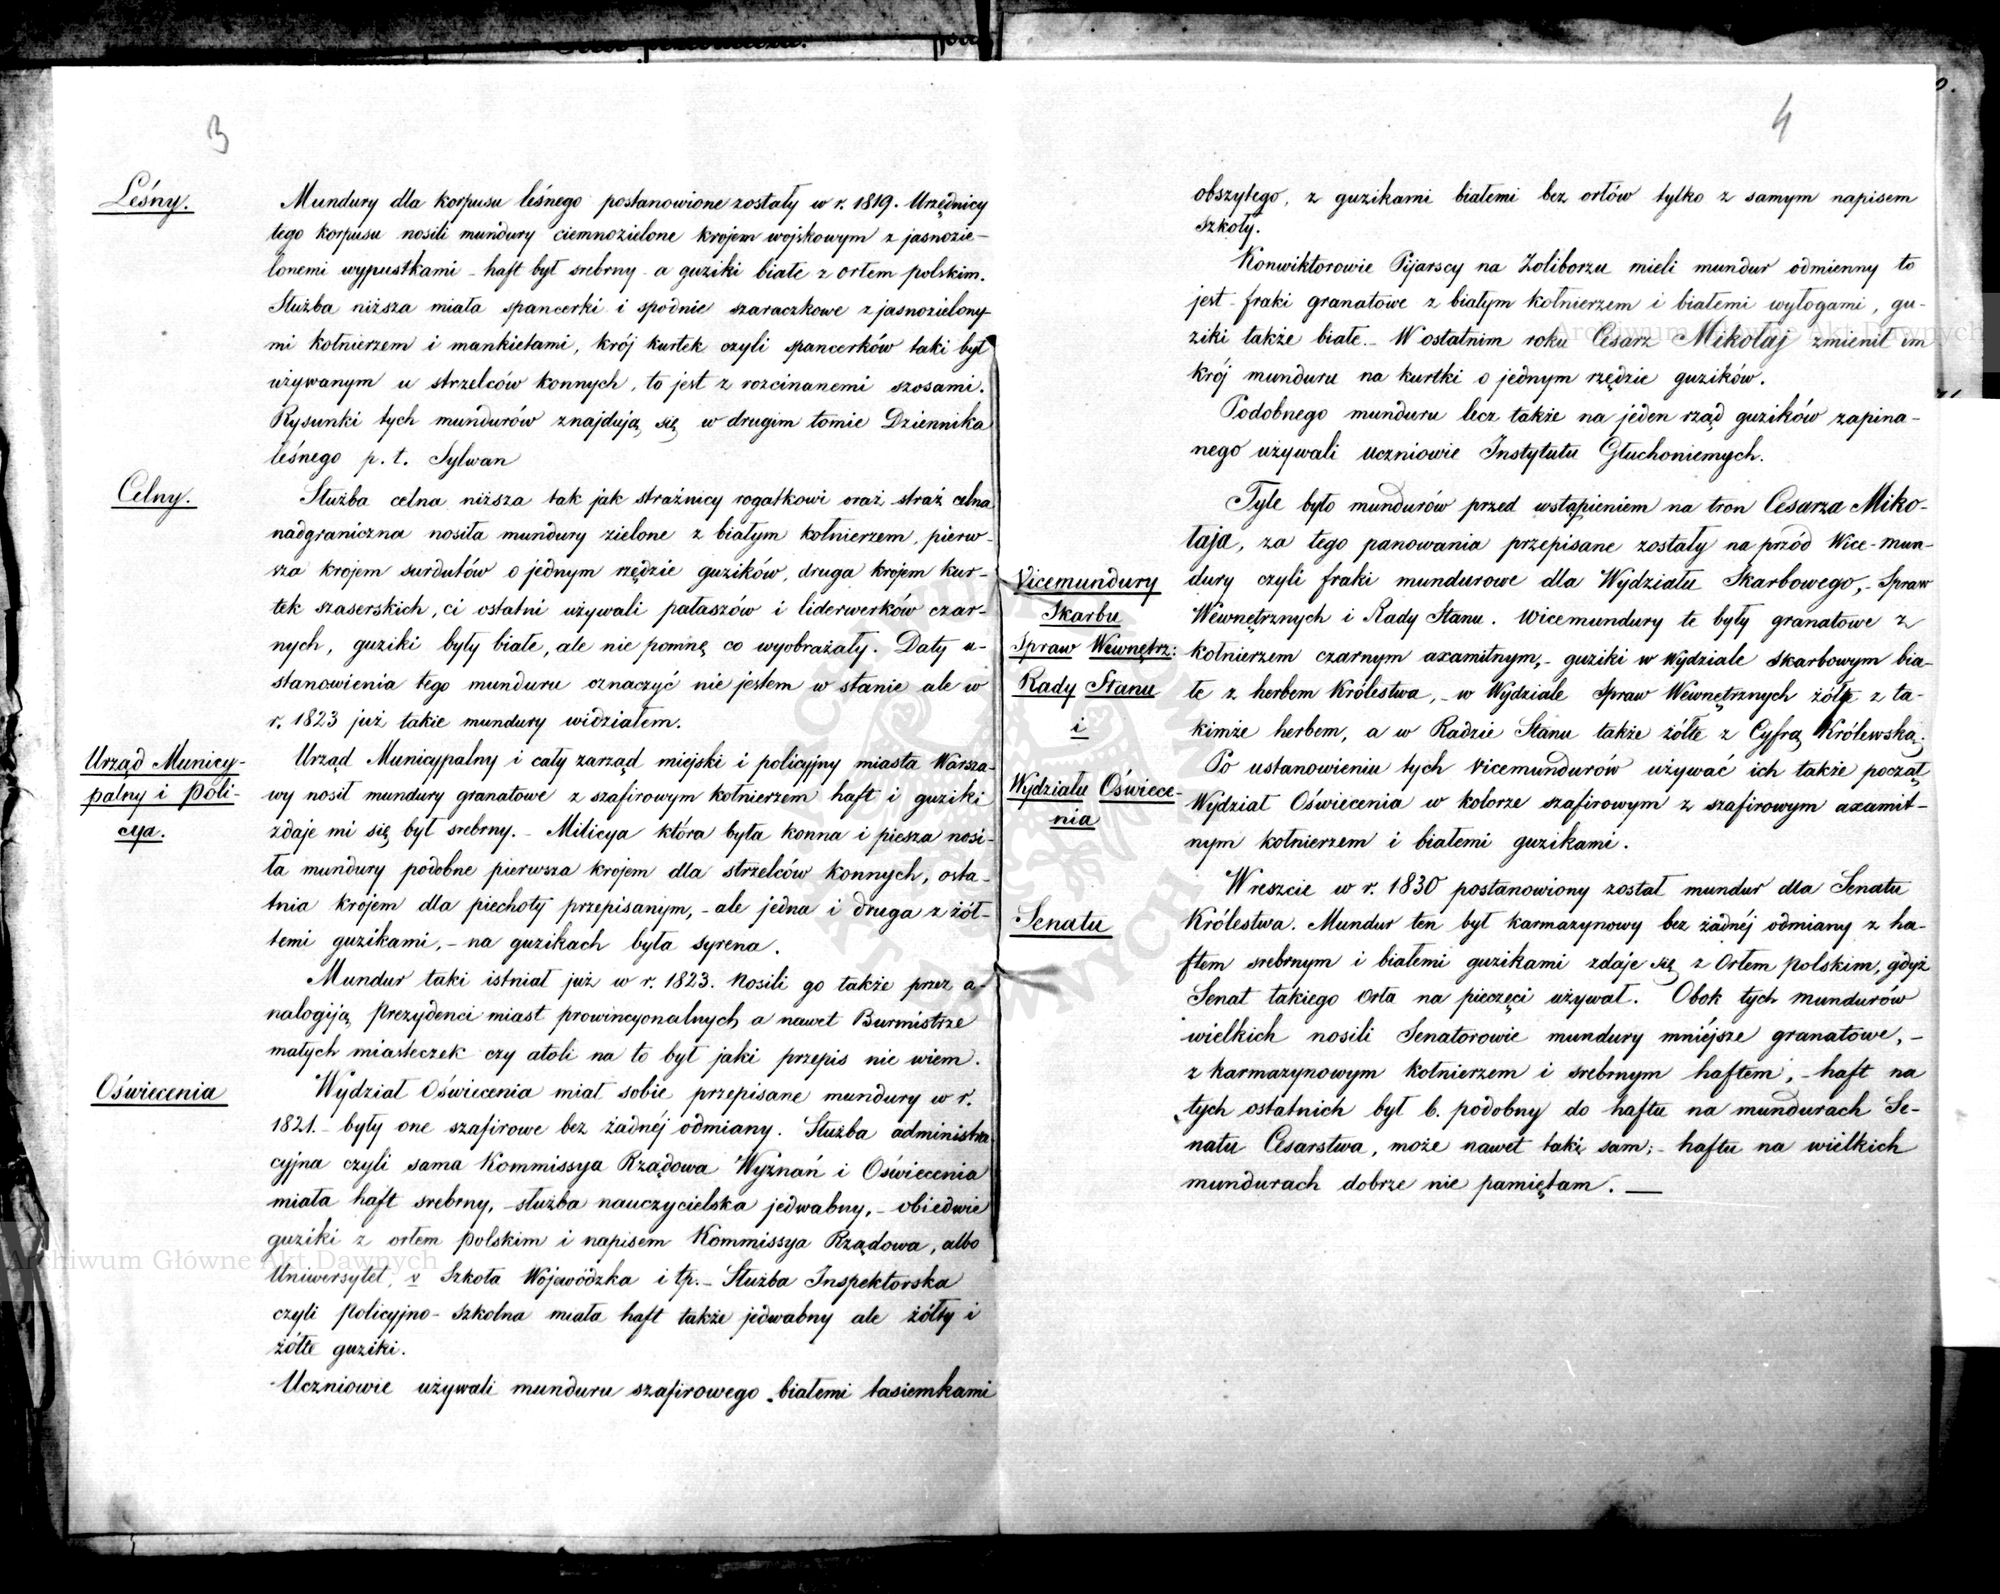 3
Leśny.
Mundury dla korpusu leśnego postanowione zostały w r. 1819. Urzędnicy
tego korpusu nosili mundury ciemnozielone krojem wojskowym z jasnozie-
lonemi wypustkami - haft był srebrny a guziki białe z orłem polskim.
Służba niższa miała spancerki i spodnie szaraczkowe z jasnozielony-
mi kołnierzem i mankietami, krój kurtek czyli spancerków taki był
używanym u strzelców konnych, to jest z rozcinanemi szosami.
Rysunki tych mundurów znajdują się w drugim tomie Dziennika
leśnego p. t. Sylwan
Celny.
Służba celna niższa tak jak strażnicy rogatkowi oraz straż celna
nadgraniczna nosiła mundury zielone z białym kołnierzem, pierw-
sza krojem surdutów o jednym rzędzie guzików, druga krojem kur-
tek szaserskich, ci ostatni używali pałaszów i liderwerków czar-
nych, guziki były białe, ale nie pomnę co wyobrażały. Daty u-
stanowienia tego munduru oznaczyć nie jestem w stanie ale w
r. 1823 już takie mundury widziałem.
Urząd Municy-
palny i Poli-
cya.
Urząd Municypalny i cały zarząd miejski i policyjny miasta Warsza-
wy nosił mundury granatowe z szafirowym kołnierzem haft i guziki
zdaje mi się był srebrny. - Milicya która była konna i piesza nosi-
ła mundury podobne pierwsza krojem dla strzelców konnych, osta-
tnia krojem dla piechoty przepisanym, - ale jedna i druga z żół-
temi guzikami, - na guzikach była syrena.
Mundur taki istniał już w r. 1823. Nosili go także przez a-
nalogiją Prezydenci miast prowincyonalnych a nawet Burmistrze
małych miasteczek czy atoli na to był jaki przepis nie wiem.
Oświecenia
Wydział Oświecenia miał sobie przepisane mundury w r.
1821. - były one szafirowe bez żadnéj odmiany. Służba administra
cyjna czyli sama Kommissya Rządowa Wyznań i Oświecenia
miała haft srebrny, - służba nauczycielska jedwabny, - obiedwie
guziki z orłem polskim i napisem Kommissya Rządowa, albo
Uniwersytet, v Szkoła Wojewódzka i tp. - Służba Inspektorska
czyli policyjno-szkolna miała haft także jedwabny ale żółty i
żółte guziki.
Uczniowie używali munduru szafirowego białemi tasiemkami
4
obszytego, z guzikami białemi bez orłów tylko z samym napisem
szkoły.
Konwiktorowie Pijarscy na Żoliborzu mieli mundur odmienny to
jest - fraki granatowe z białym kołnierzem i białemi wyłogami, gu-
ziki także białe. - W ostatnim roku Cesarz Mikołaj zmienił im
krój munduru na kurtki o jednym rzędzie guzików.
Podobnego munduru lecz także na jeden rząd guzików zapina-
nego używali uczniowie Instytutu Głuchoniemych.
Tyle było mundurów przed wstąpieniem na tron Cesarza Miko-
łaja, za tego panowania przepisane zostały na przód Wice-mun-
dury czyli fraki mundurowe dla Wydziału Skarbowego, - Spraw
Wewnętrznych i Rady Stanu. Wicemundury te były granatowe z
kołnierzem czarnym axamitnym, - guziki w Wydziale skarbowym bia-
łe z herbem Królestwa, - w Wydziale Spraw Wewnętrznych żółte z ta-
kimże herbem, a w Radzie Stanu także żółte z Cyfrą Królewską.
Vicemundury
Skarbu
Spraw Wewnętrz:
Rady Stanu
i
Wydziału Oświece-
nia
Po ustanowieniu tych Vicemundurów używać ich także począł
Wydział Oświecenia w kolorze szafirowym z szafirowym axamit-
nym kołnierzem i białemi guzikami.
Senatu
Wreszcie w r. 1830 postanowiony został mundur dla Senatu
Królestwa. Mundur ten był karmazynowy bez żadnéj odmiany z ha-
ftem srebrnym i białemi guzikami zdaje się z Orłem polskim, gdyż
Senat takiego Orła na pieczęci używał. Obok tych mundurów
wielkich nosili Senatorowie mundury mniéjsze granatowe, -
z karmazynowym kołnierzem i srebrnym haftem, - haft na
tych ostatnich był b. podobny do haftu na mundurach Se-
natu Cesarstwa, może nawet taki sam; - haftu na wielkich
mundurach dobrze nie pamiętam. —
Archiwum Główne Akt Dawnych
Archiwum Główne Akt Dawnych